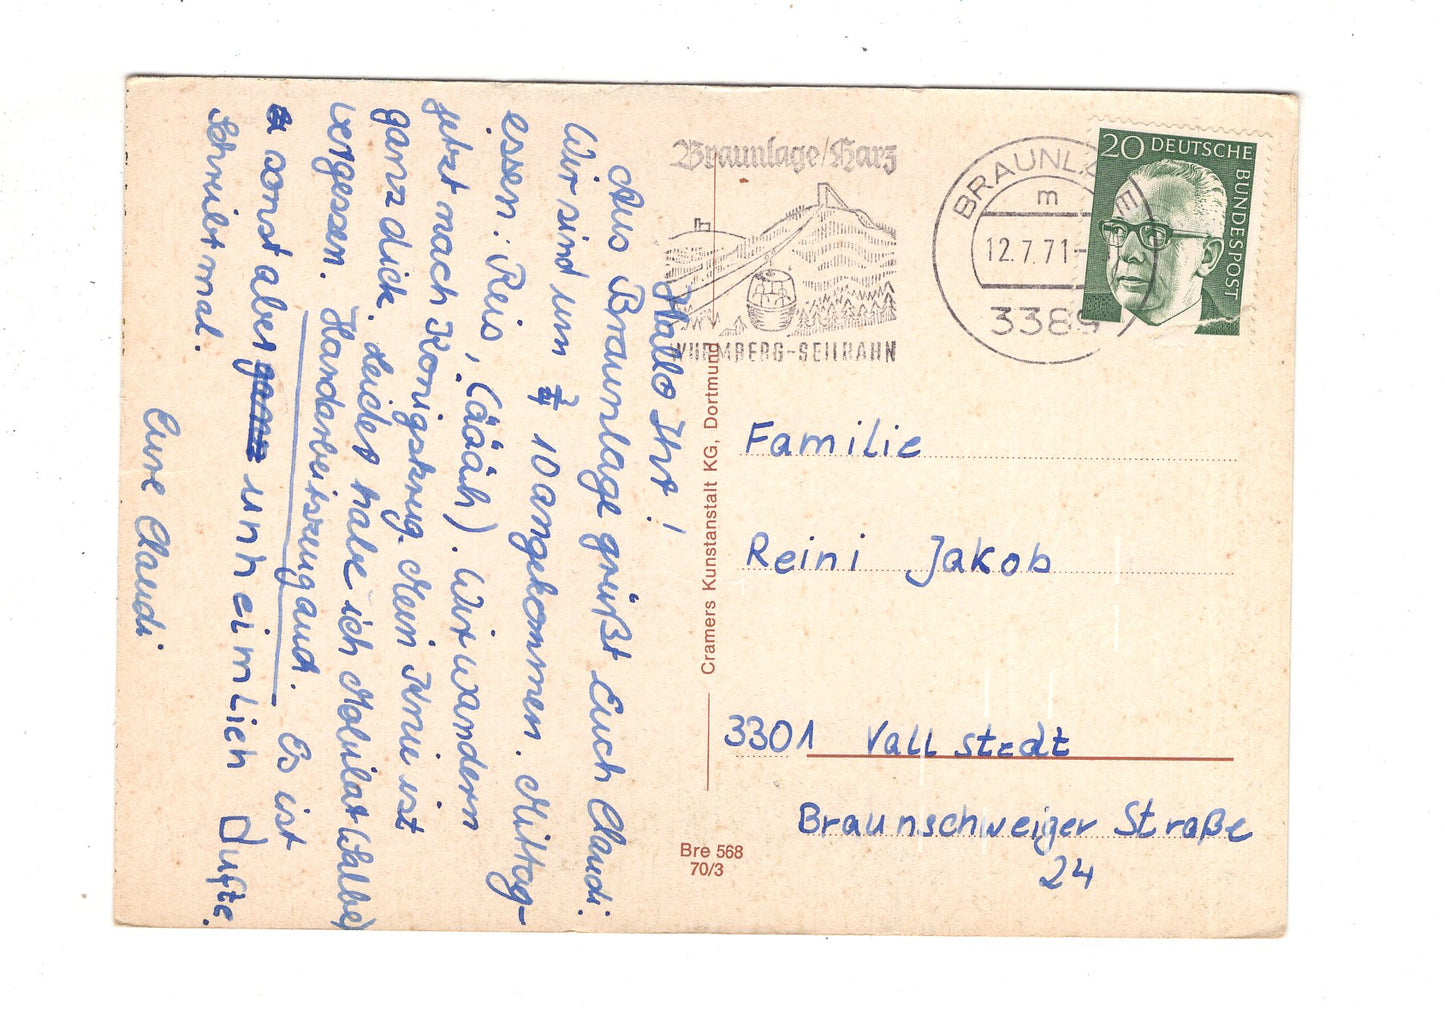 Hallo Ihr!
Aus Braunlage grüßt Euch Claudi.
Wir sind um 3/4 10 angekommen. Mittag-
essen: Reis, (äääh). Wir wandern
jetzt nach Königskrug. Mein Knie ist
ganz dick. Leider habe ich Mobilat (Salbe)
vergessen. Handarbeitszeug auch. Es ist
sonst aber ganz unheimlich Dufte.
Schreibt mal.
Eure Claudi
Braunlage/Harz
WURMBERG-SEILBAHN
BRAUNLAGE
m
12.7.71-
3389
20 DEUTSCHE
BUNDESPOST
Cramers Kunstanstalt KG, Dortmund
Familie
Reini Jakob
3301 Vallstedt
Braunschweiger Straße
24
Bre 568
70/3